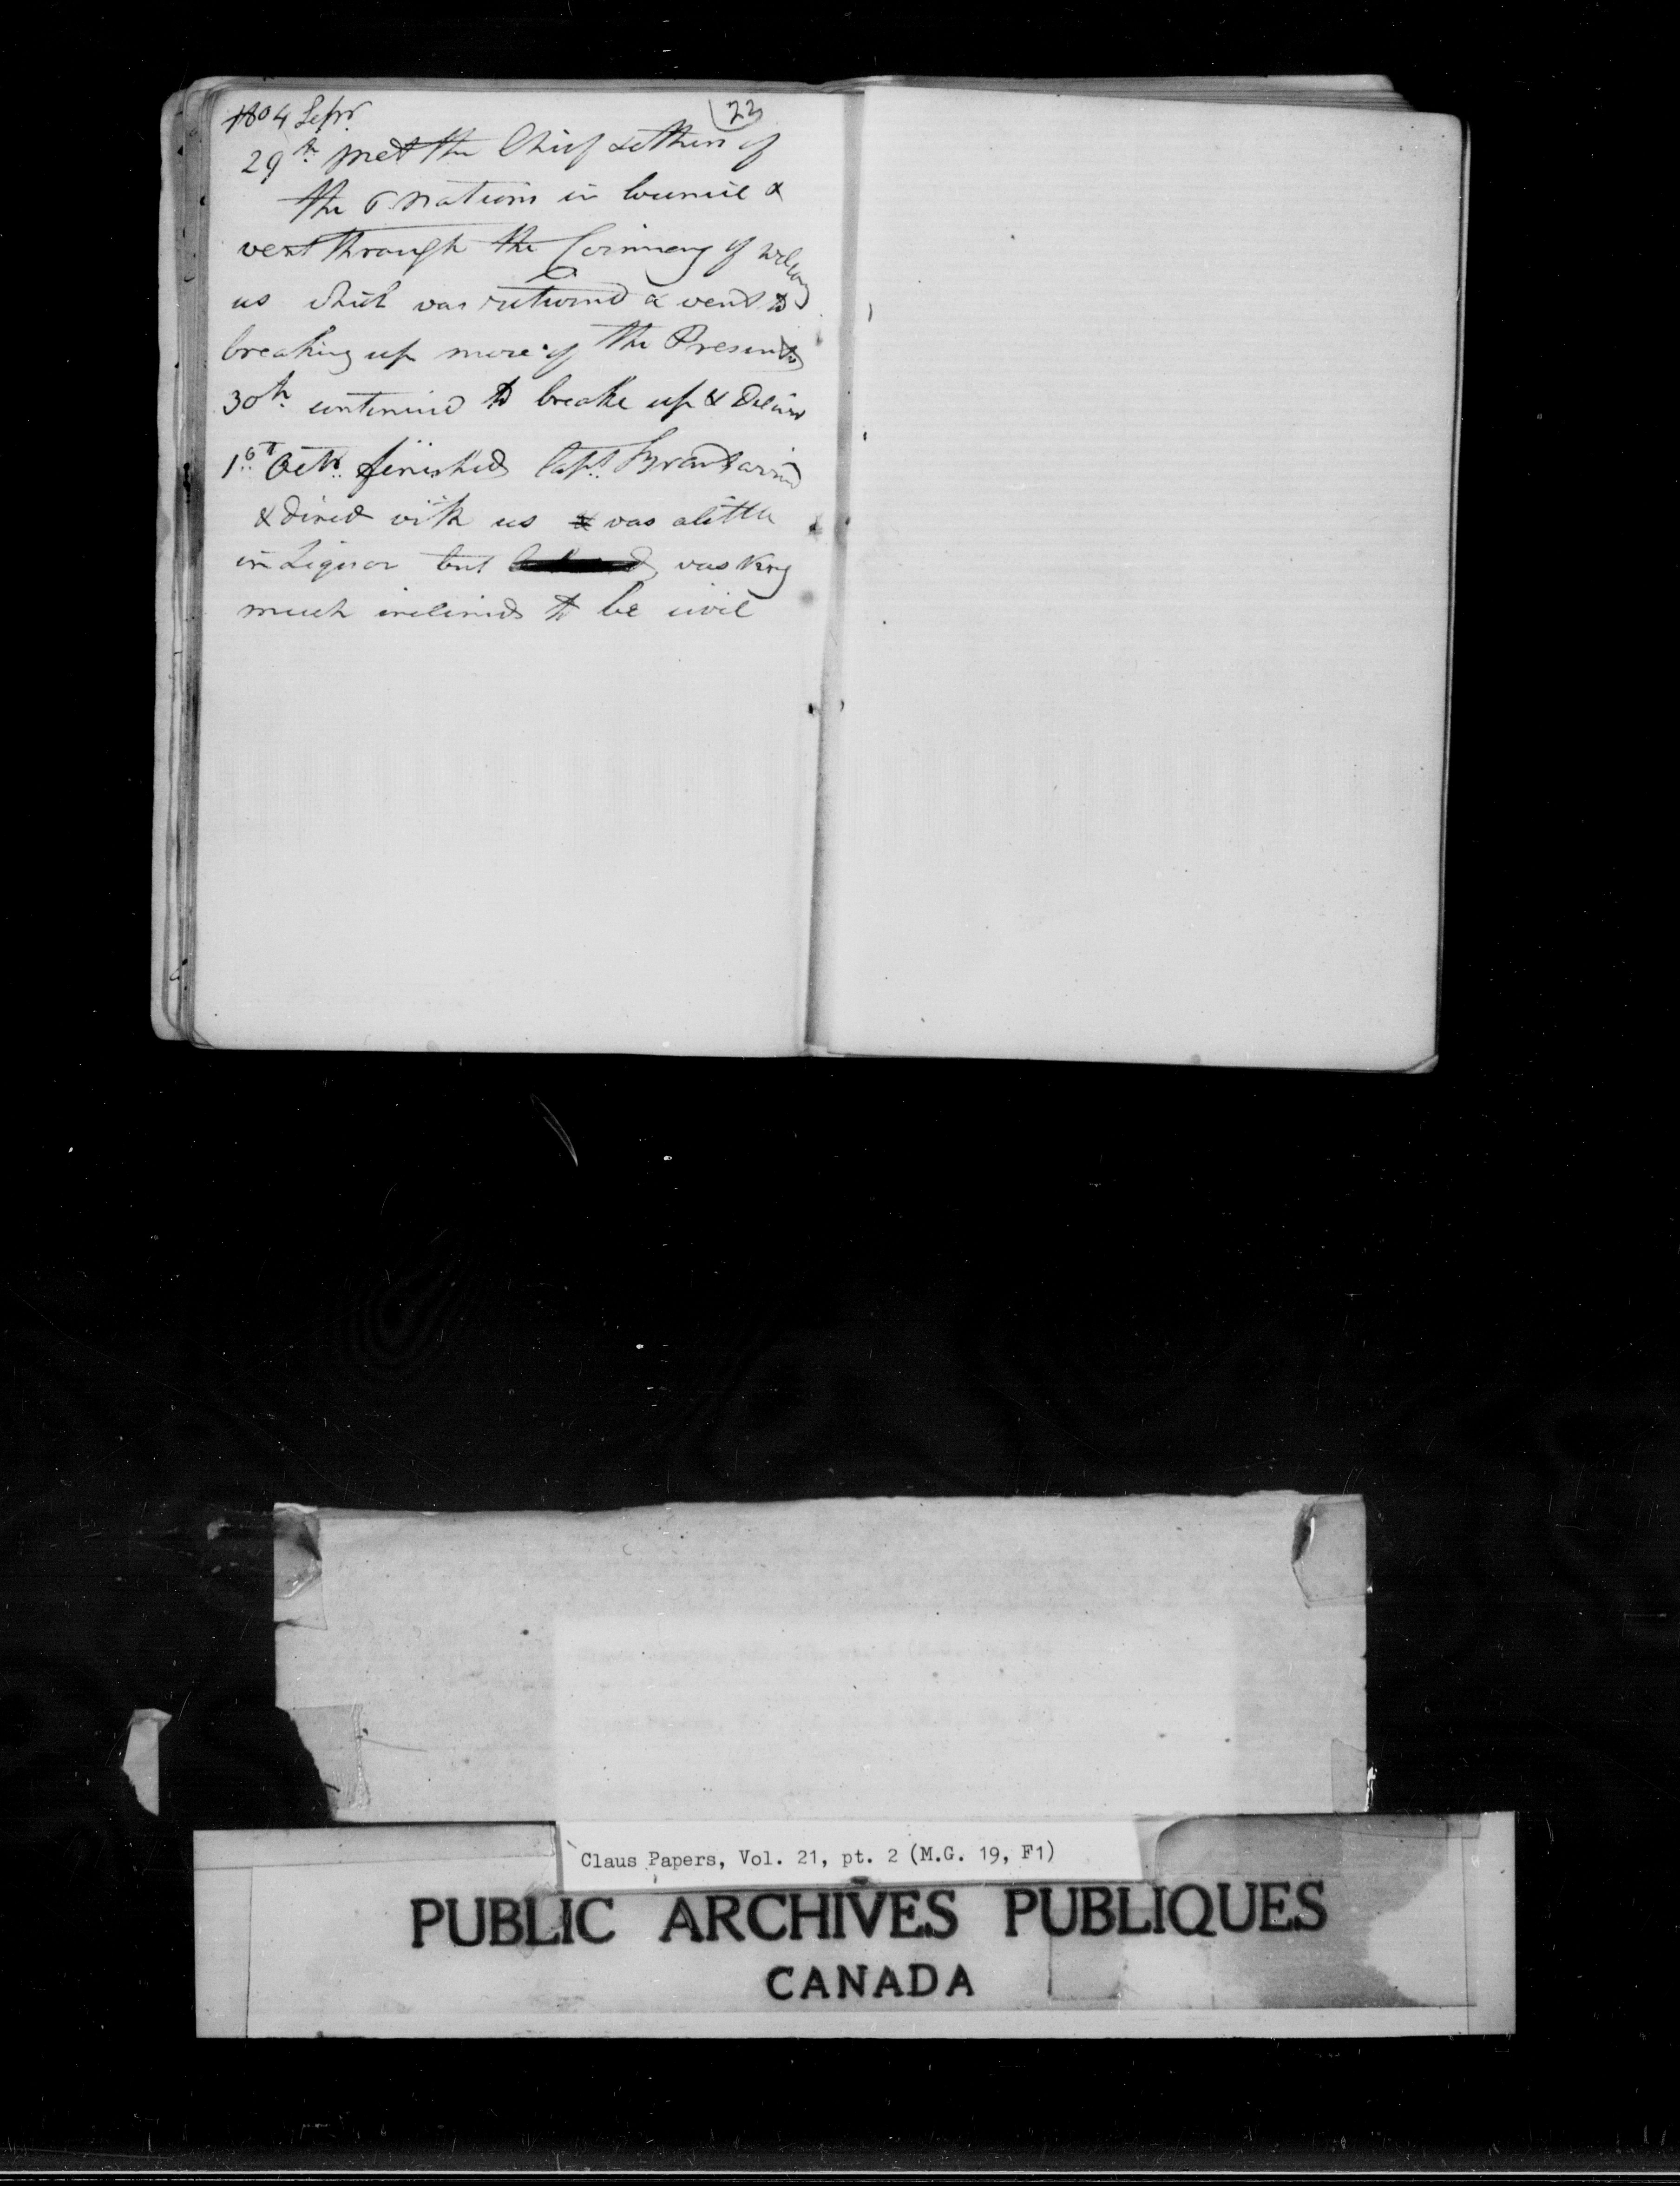 1804 Sepr. 22
29th met the Chief & others of
the 6 Nations in Council &
went through the Cerimony of welcomg
us which was returned & went to
breaking up more of the Presents
30th continued to breake up &
1st Octr. finished Capt. Brant arrivd
& dined with us & was a little
in Liquor but was very
much inclined to be civil
Claus Papers, Vol. 21, pt. 2 (M.G. 19, F1)
PUBLIC ARCHIVES PUBLIQUES
CANADA